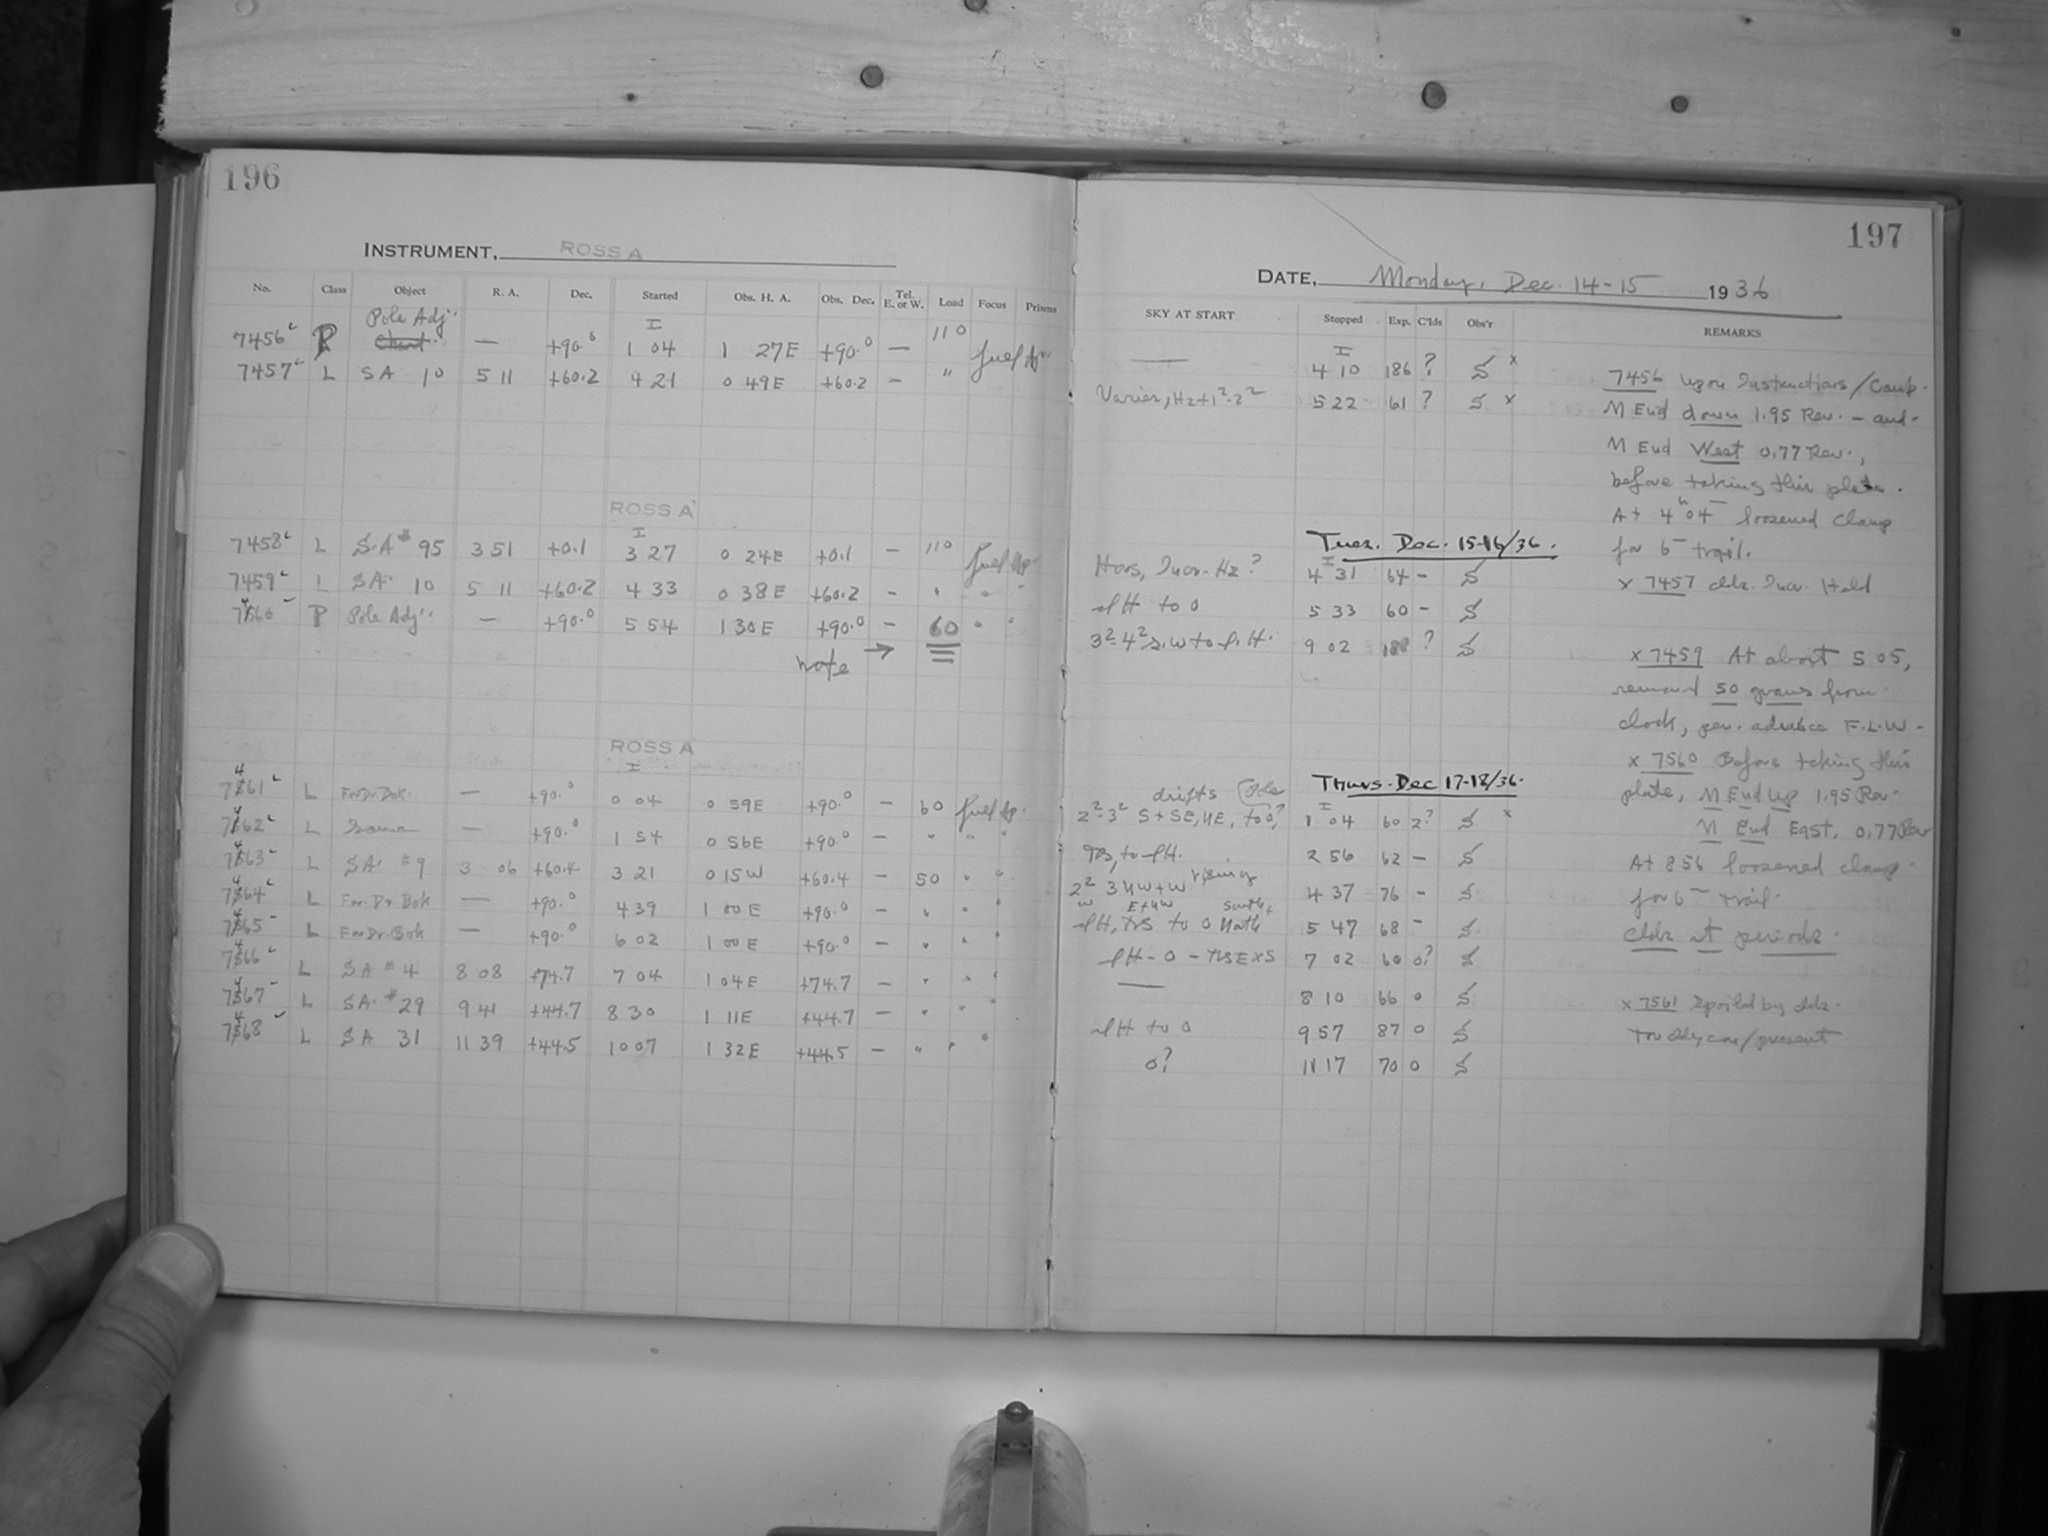 196
INSTRUMENT, ROSS A
No. Class Object R. A. Dec. Started Obs. H. A. Obs. Dec. Tel. E. or W. Load Focus Prisms
7456 P Pole Adj. — +90.0 1 04 1 27E +90.0 — 110
7457 L SA 10 5 11 +60.2 4 21 0 49E +60.2 — "
ROSS A
7458 L S.A # 95 3 51 +0.1 3 27 0 24E +0.1 — 110
7459 L SA. 10 5 11 +60.2 4 33 0 38E +60.2 — " " "
7460 P Pole Adj. — +90.0 5 54 1 30E +90.0 — 60 " "
note →
ROSS A
7461 L For Dr. Bok — +90.0 0 04 0 59E +90.0 — 60
7462 L Same — +90.0 1 54 0 56E +90.0 — " " "
7463 L SA. #9 3 06 +60.4 3 21 0 15W +60.4 — 50 " "
7464 L For Dr. Bok — +90.0 4 39 1 00E +90.0 — " " "
7465 L For Dr. Bok — +90.0 6 02 1 00E +90.0 — " " "
7466 L SA #4 8 08 +74.7 7 04 1 04E +74.7 — " " "
7467 L SA. #29 9 41 +44.7 8 30 1 11E +44.7 — " " "
7468 L SA 31 11 39 +44.5 10 07 1 32E +44.5 — " " "
197
DATE, Monday, Dec. 14-15 1936
SKY AT START Stopped Exp. C'lds Obs'r REMARKS
— 4 10 186 ? S x
5 22 61 ? S x
7456 upon Instructions/Camp.
M End down 1.95 Rev. — and
M End West 0.77 Rev.,
before taking this plate.
At 4h 04m loosened clamp
for 6m trail.
x 7457 clds. Incr. Held
Tues. Dec. 15-16/36.
Hors, Incr. Hz? 4 31 64 — S
to 0 5 33 60 — S
9 02 188 ? S
x 7459 At about 5 05,
removed 50 grams from
clock, per. advice F.L.W.
x 7560 Before taking this
plate, M End Up 1.95 Rev.
M End East, 0.77 Rev
At 8 56 loosened clamp
for 6m trail.
clds at periods.
Thurs. Dec 17-18/36.
drifts Pole
2²-3² S + SE, NE, to 0? 1 04 60 2? S x
2 56 62 — S
4 37 76 — S
5 47 68 — S
7 02 60 0? S
— 8 10 66 0 S
to 0 9 57 87 0 S
0? 11 17 70 0 S
x 7561 Spoiled by clds.